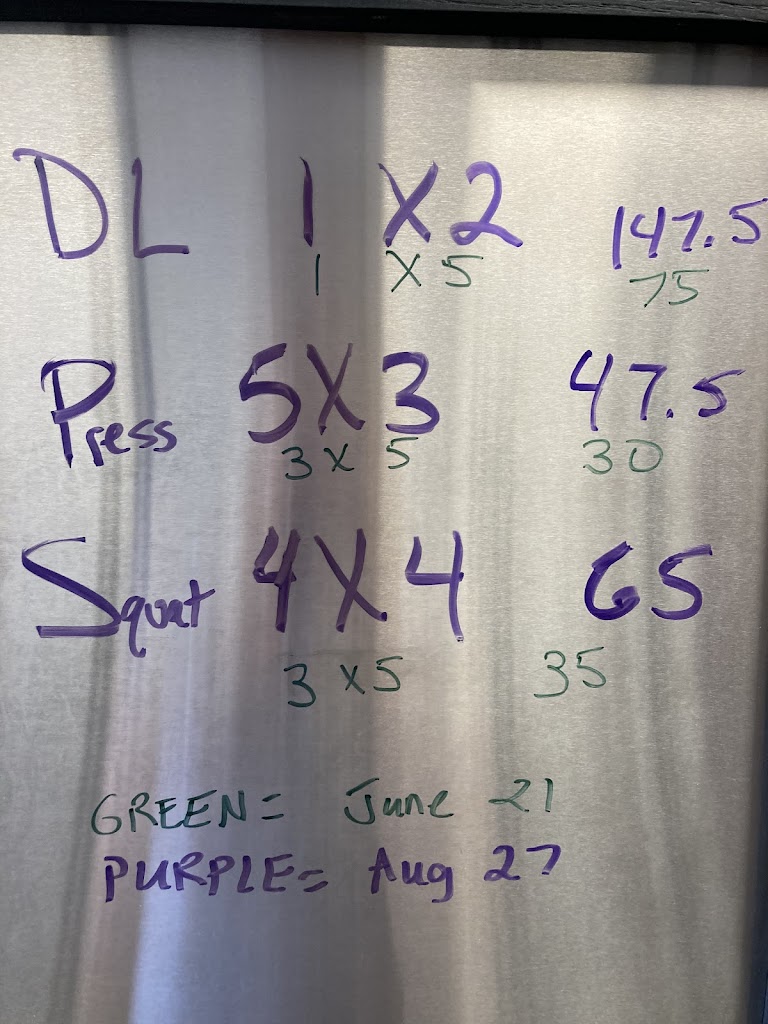 DL 1 X 2 147.5
1 X 5 75
Press 5 X 3 47.5
3 x 5 30
Squat 4 X 4 65
3 x 5 35
GREEN = June 21
PURPLE = Aug 27